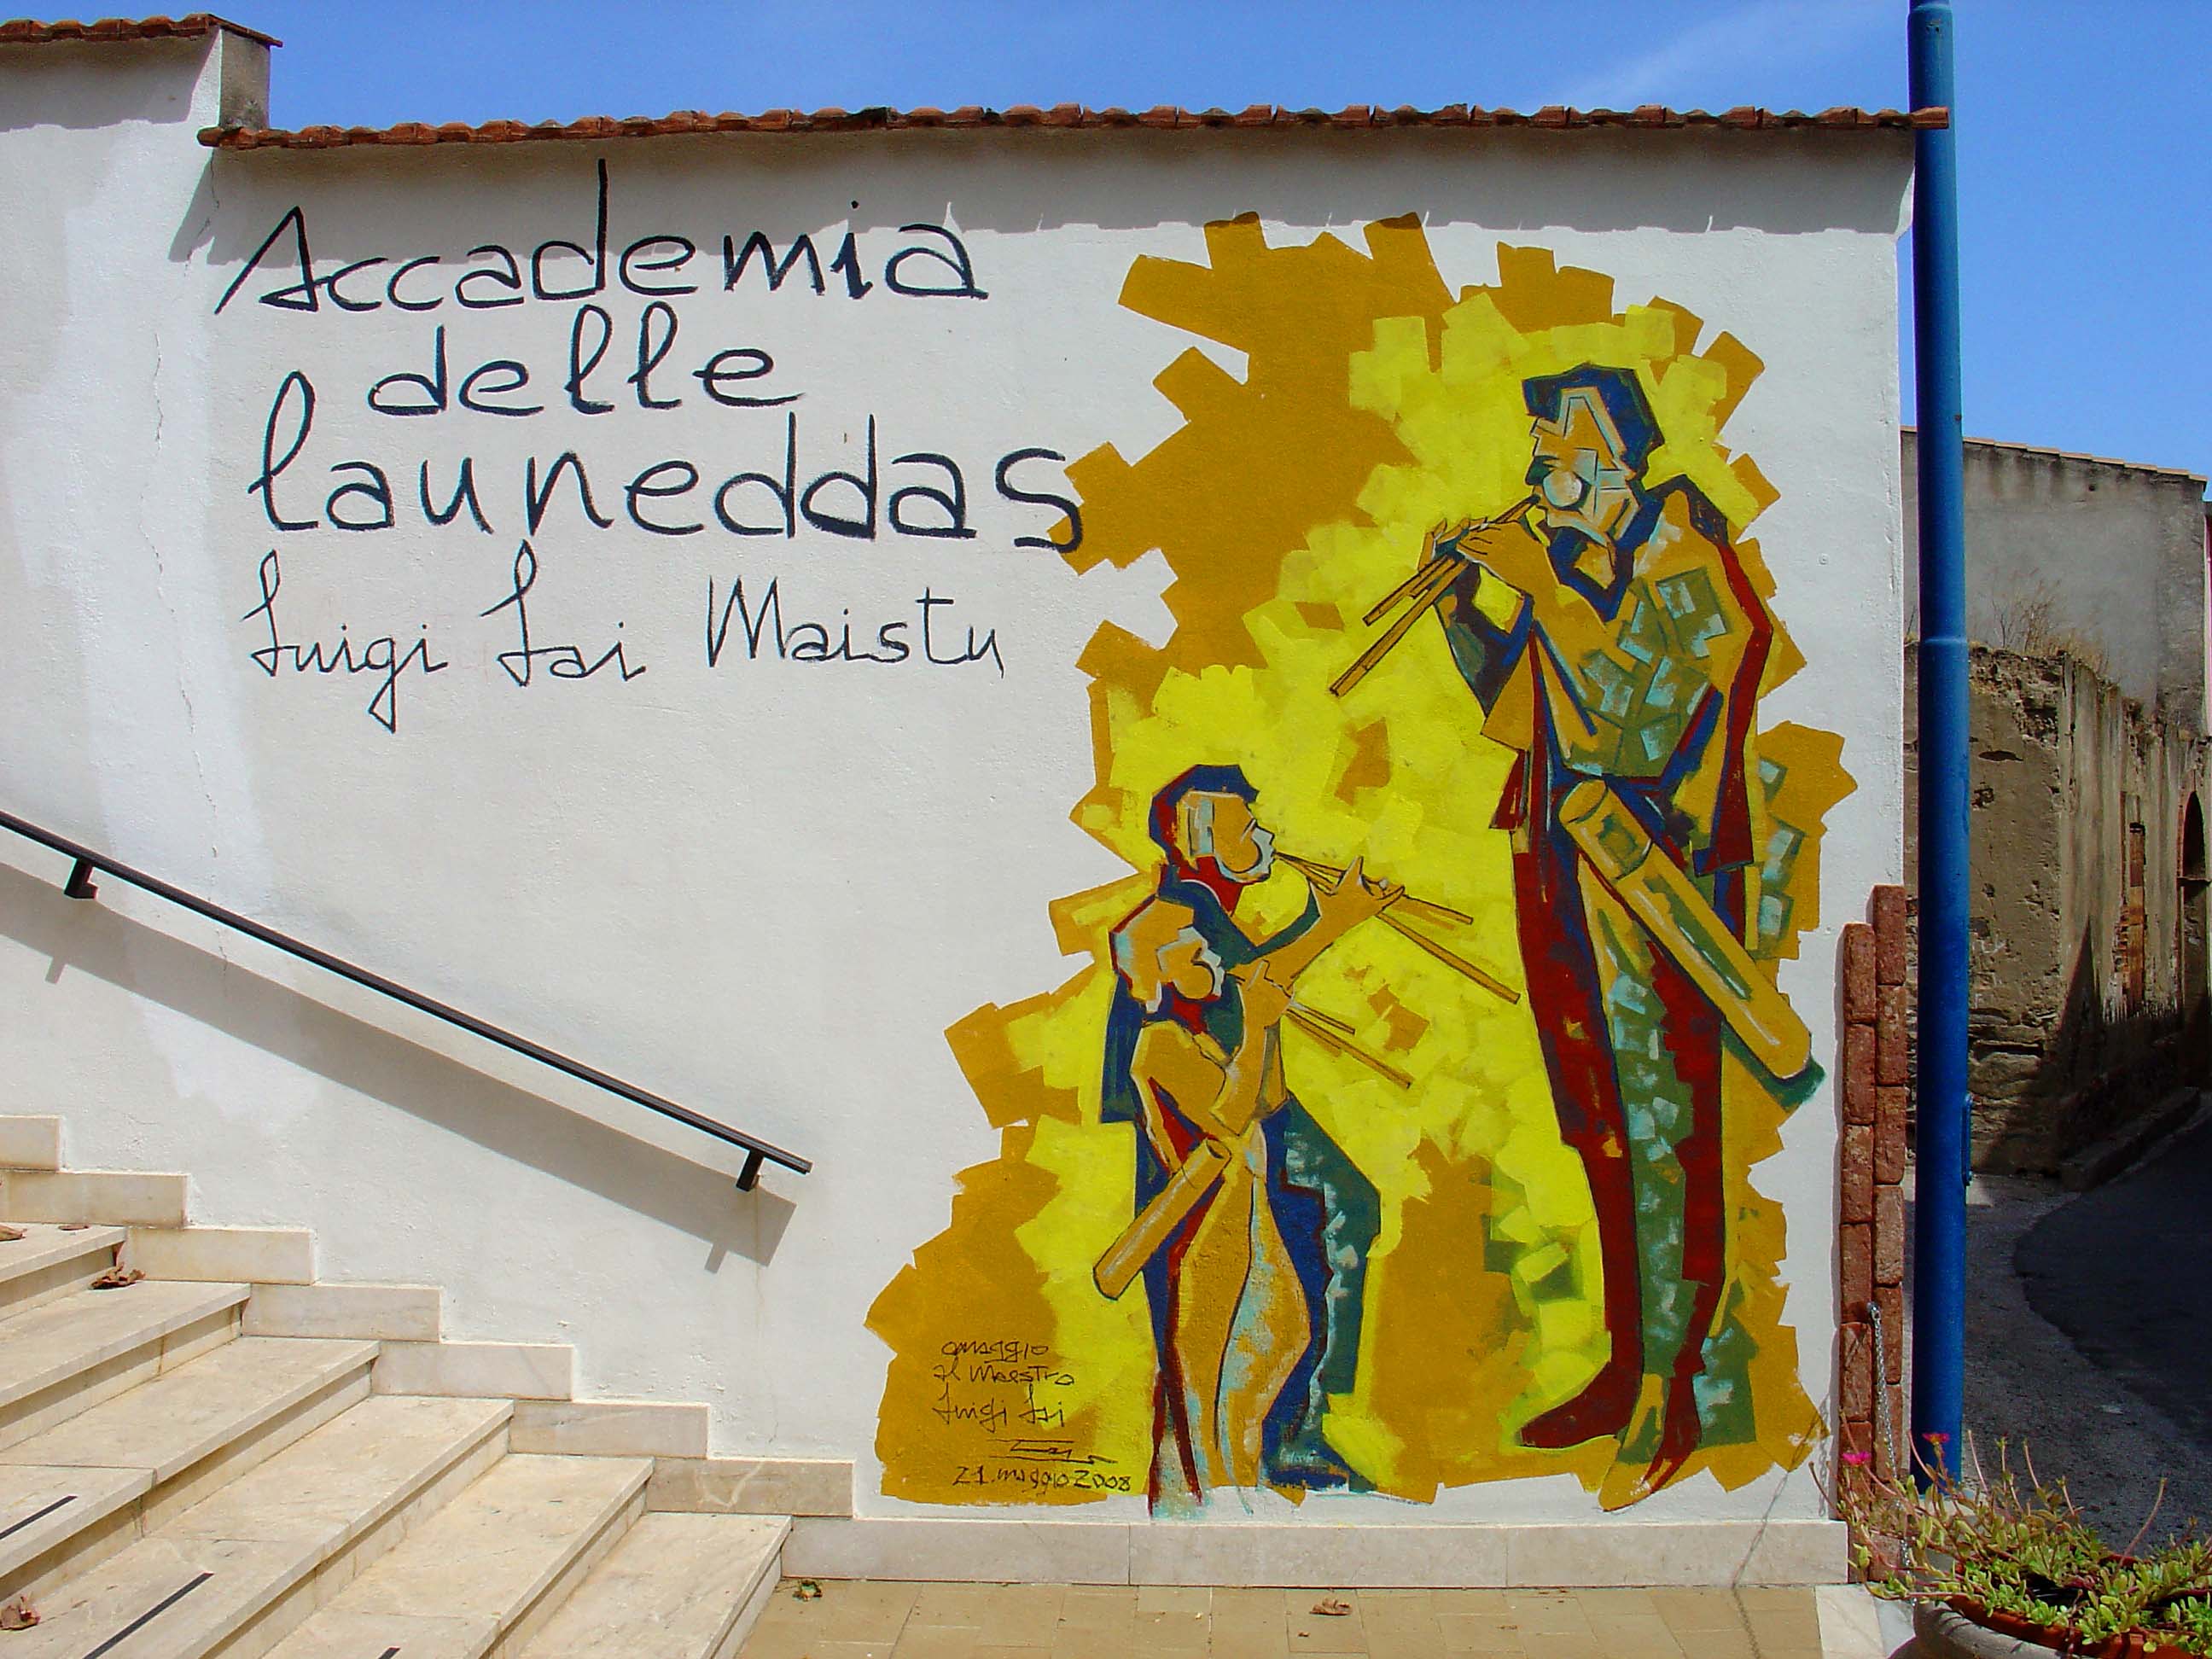 Accademia
delle
launeddas
Luigi Lai Maistu
omaggio
al Maestro
Luigi Lai
21. maggio 2008